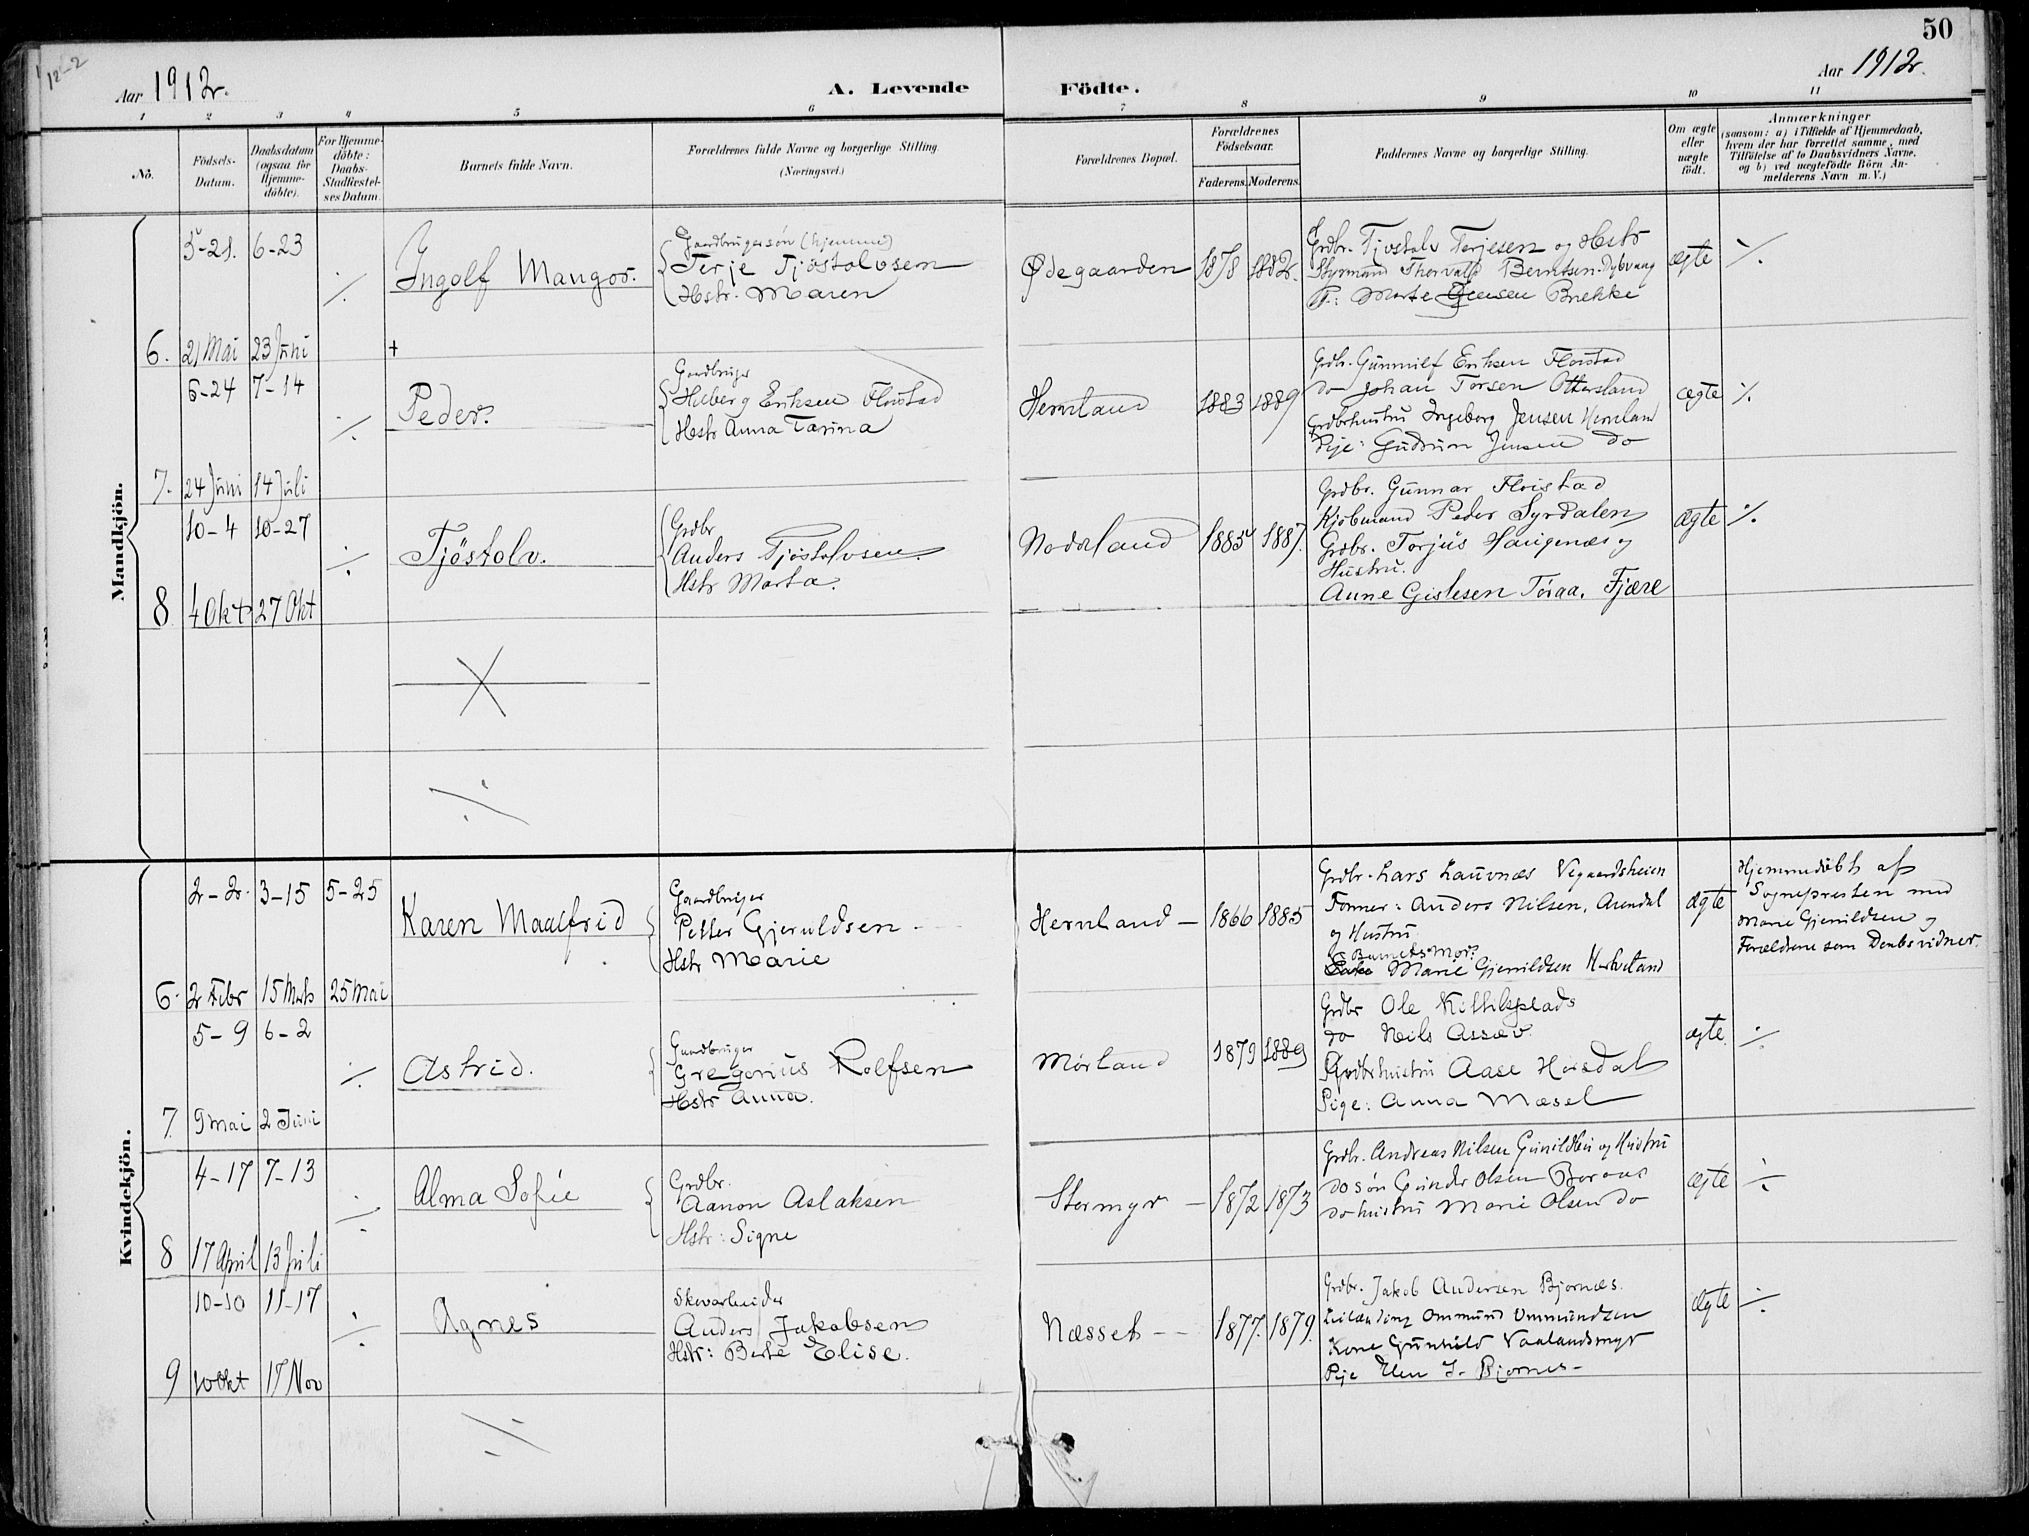 50
12-2
Aar 1912.
A. Levende Födte.
Aar 1912.
1 2 3 4 5 6 7 8 9 10 11
No.
Födsels-Datum.
Daabsdatum (ogsaa for Hjemme-döbte).
For Hjemme-döbte: Daabs-Stadfæstel-ses Datum.
Barnets fulde Navn.
Forældrenes fulde Navne og borgerlige Stilling.
(Næringsvei.)
Forældrenes Bopæl.
Forældrenes Födselsaar.
Faderens. Moderens.
Faddernes Navne og borgerlige Stilling.
Om ægte eller uægte födt.
Anmærkninger
(saasom: a) i Tilfælde af Hjemmedaab,
hvem der har forrettet samme, med
Tilföielse af to Daabsvidners Navne,
og b) ved uægtefödte Börn An-
melderens Navn m. V.)
Mandkjön.
5-21. 6-23
6. 21 Mai 23 Juni
Ingolf Mangor.
+
Gaardbrugersøn (hjemme)
Terje Tjöstolvsen
Hstr. Maren
Ødegaarden
1878 1882.
Grdbr. Tjostolv Terjesen og Hstr
Styrmand Thorvald Berntsen Dybvaag
P: Marte Jensen Brekke
ægte ./.
6-24 7-14
7. 24 Juni 14 Juli
Peder.
Gaardbruger
Huberg Eriksen Flovstad
Hstr Anna Tarina
Hernland
1883 1889
Grdbr. Gunnulf Eriksen Flovstad
do Johan Torsen Ottersland
Grdbrhustru Ingeborg Jensen Hernland
Pije: Gudrun Jensen do
ægte ./.
10-4 10-27
8 4 Okt 27 Okt
Tjöstolv.
Grdbr
Anders Tjöstolvsen.
Hstr Marta.
Nodeland
1885 1887.
Grdbr. Gunnar Flovstad
Kjöbmand Peder Syrdalen
Grdbr. Torjus Haugenæs og
Hustru.
Anne Gislesen Töraa, Fjære
Ægte ./.
Kvindekjön.
2-2. 3-15 5-25
6. 2 Febr 15 Marts 25 Mai
Karen Maalfrid
Gaardbruger
Petter Gjeruldsen
Hstr Marie
Hernland
1866 1885
Grdbr. Lars Lauvnæs Vegaardsheien
Former: Anders Nilsen, Arendal
og Hustru
Barnets Mor:
Marie Gjeruldsen
ægte
Hjemmedöbt af
Sognepresten med
Marie Gjeruldsen og
Forældrene som Daabsvidner.
5-9 6-2
7. 9 Mai 2 Juni
Astrid.
Gaardbruger
Gregorius Rolfsen
Hstr Anna.
Mörland
1879 1889
Grdbr Ole Kittilsplads
do Neils Assæv
Grdbrhustru Aase Hoisdal
Pige: Anna Mæsel
ægte.
4-17 7-13
8 17 April 13 Juli
Alma Sofie
Grdbr.
Aanon Aslaksen
Hstr: Signe
Stormyr
1872 1873
Grdbr. Andreas Nilsen Gunildsbu og Hustru
do sön Gunder Olsen Boraas
do hustru Marie Olsen do
ægte
10-10 11-17
9 10 Okt 17 Nov
Agnes
Skovarbeider
Anders Jakobsen
Hstr: Berte Elise.
Næsset
1877. 1879.
Grdbr. Jakob Andersen Bjornæs.
Ommund Ommundsen
Kone Gunhild Vaalandsmyr
Pije Elen J. Bjornes
Ægte